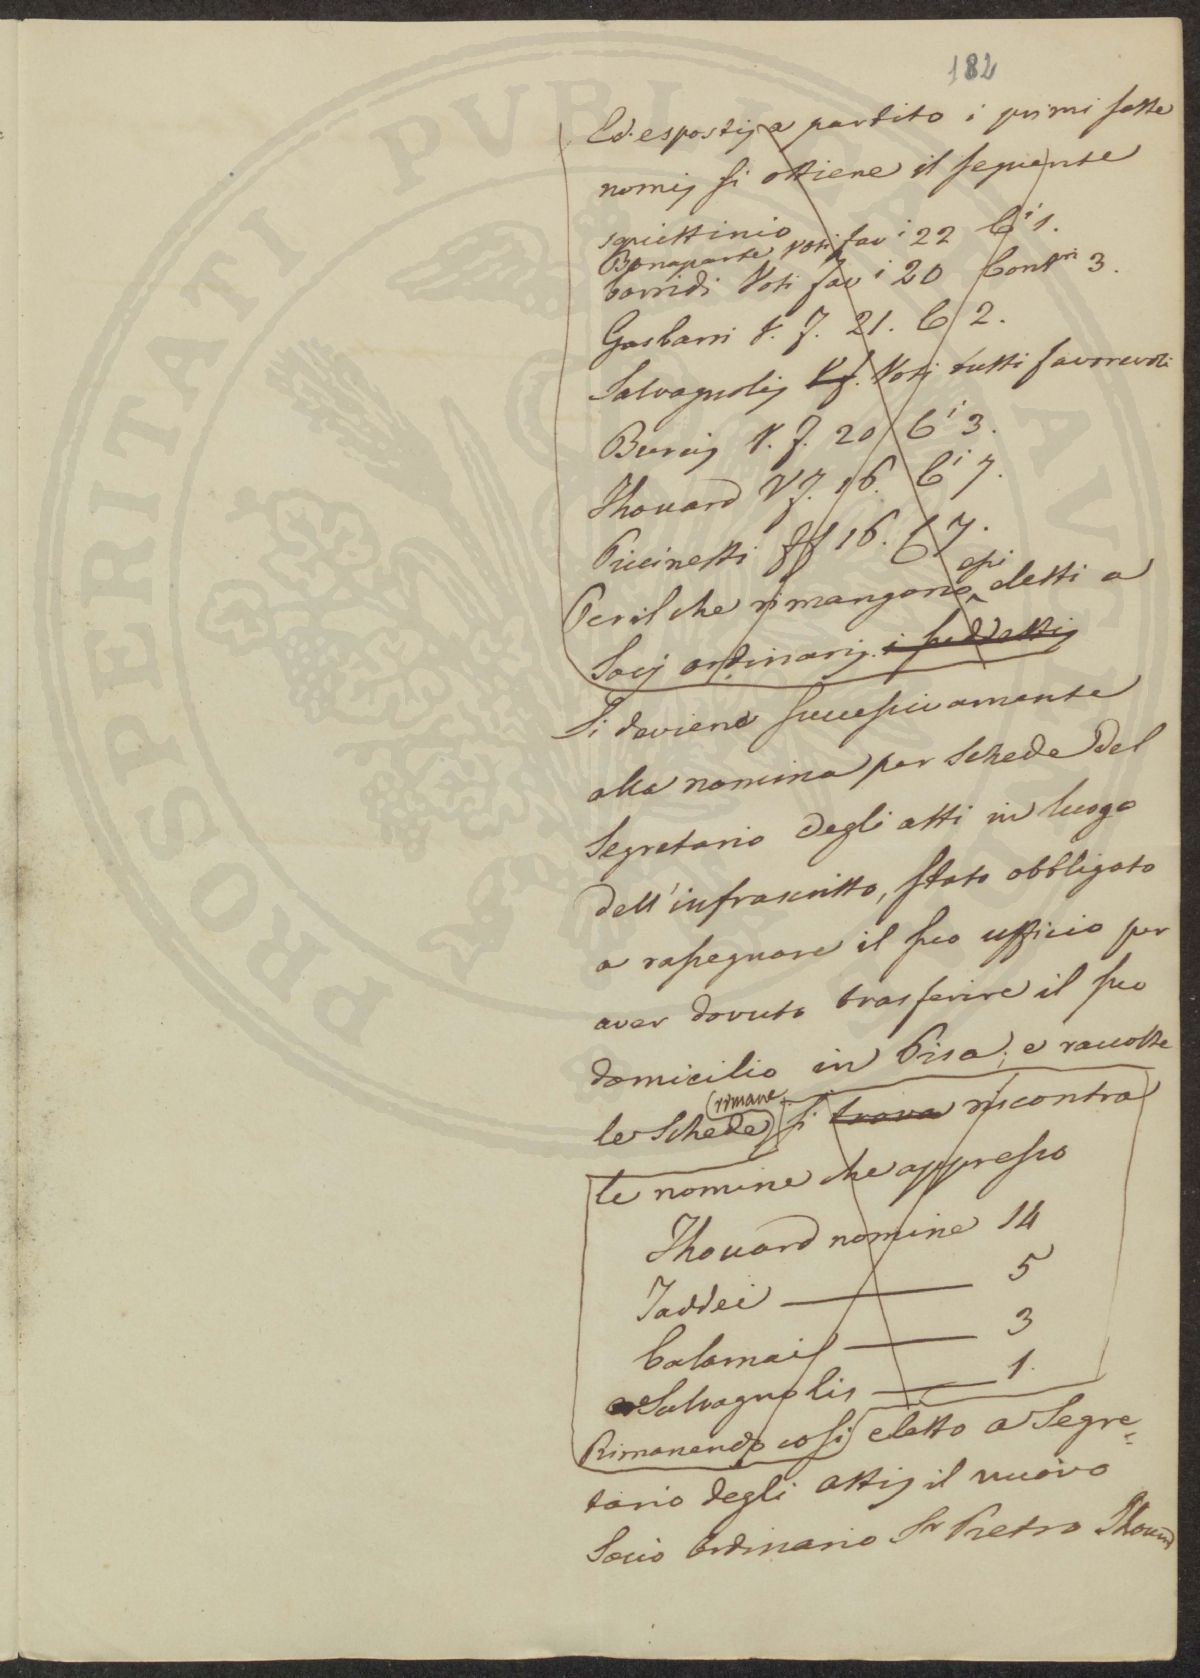 182
Ed esposti a partito i primi sette
nomi si ottiene il seguente
squittinio
Bonaparte voti fav i 22 C i 1.
Corridi Voti fav i 20 Contri 3.
Gasbarri V. F. 21. C 2.
Salvagnoli V f. Voti tutti favorevoli
Burci V. F. 20 C i 3.
Thouard V F. 16. C i 7.
Piccinetti ff 16. C 7.
Per il che rimangono essi eletti a
Socj ordinarj. i suddetti
Si deviene successivamente
alla nomina per schede del
Segretario degli atti in luogo
dell'infrascritto, stato obbligato
a rassegnare il suo ufficio per
aver dovuto trasferire il suo
domicilio in Pisa; e raccolte
le schede rimane si trova riscontra
te nomine che appresso
Thouard nomine 14
Taddei 5
Calamai 3
Salvagnoli 1.
Rimanendo così eletto a Segre=
tario degli atti il nuovo
Socio Ordinario Sr Pietro Thouard
PROSPERITATI PVBLICAE AVGENDAE